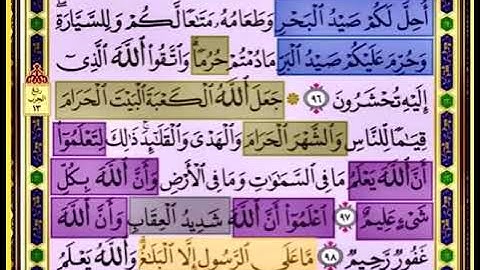 أُحِلَّ لَكُمْ صَيْدُ ٱلْبَحْرِ وَطَعَامُهُۥ مَتَٰعًا لَّكُمْ وَلِلسَّيَّارَةِ ۖ
وَحُرِّمَ عَلَيْكُمْ صَيْدُ ٱلْبَرِّ مَا دُمْتُمْ حُرُمًا ۗ وَٱتَّقُوا۟ ٱللَّهَ ٱلَّذِىٓ
إِلَيْهِ تُحْشَرُونَ ٩٦ ۞ جَعَلَ ٱللَّهُ ٱلْكَعْبَةَ ٱلْبَيْتَ ٱلْحَرَامَ
قِيَٰمًا لِّلنَّاسِ وَٱلشَّهْرَ ٱلْحَرَامَ وَٱلْهَدْىَ وَٱلْقَلَٰٓئِدَ ۚ ذَٰلِكَ لِتَعْلَمُوٓا۟
أَنَّ ٱللَّهَ يَعْلَمُ مَا فِى ٱلسَّمَٰوَٰتِ وَمَا فِى ٱلْأَرْضِ وَأَنَّ ٱللَّهَ بِكُلِّ
شَىْءٍ عَلِيمٌ ٩٧ ٱعْلَمُوٓا۟ أَنَّ ٱللَّهَ شَدِيدُ ٱلْعِقَابِ وَأَنَّ ٱللَّهَ
غَفُورٌ رَّحِيمٌ ٩٨ مَّا عَلَى ٱلرَّسُولِ إِلَّا ٱلْبَلَٰغُ ۗ وَٱللَّهُ يَعْلَمُ
ربع
الحزب
١٣